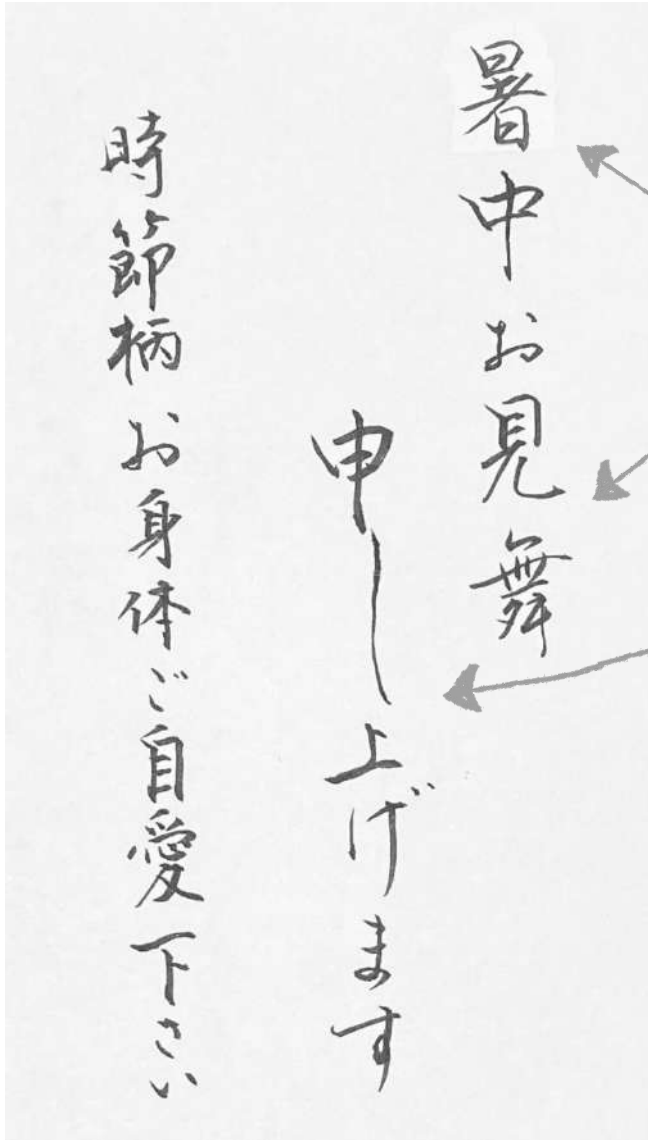 暑中お見舞
申し上げます
時節柄お身体ご自愛下さい